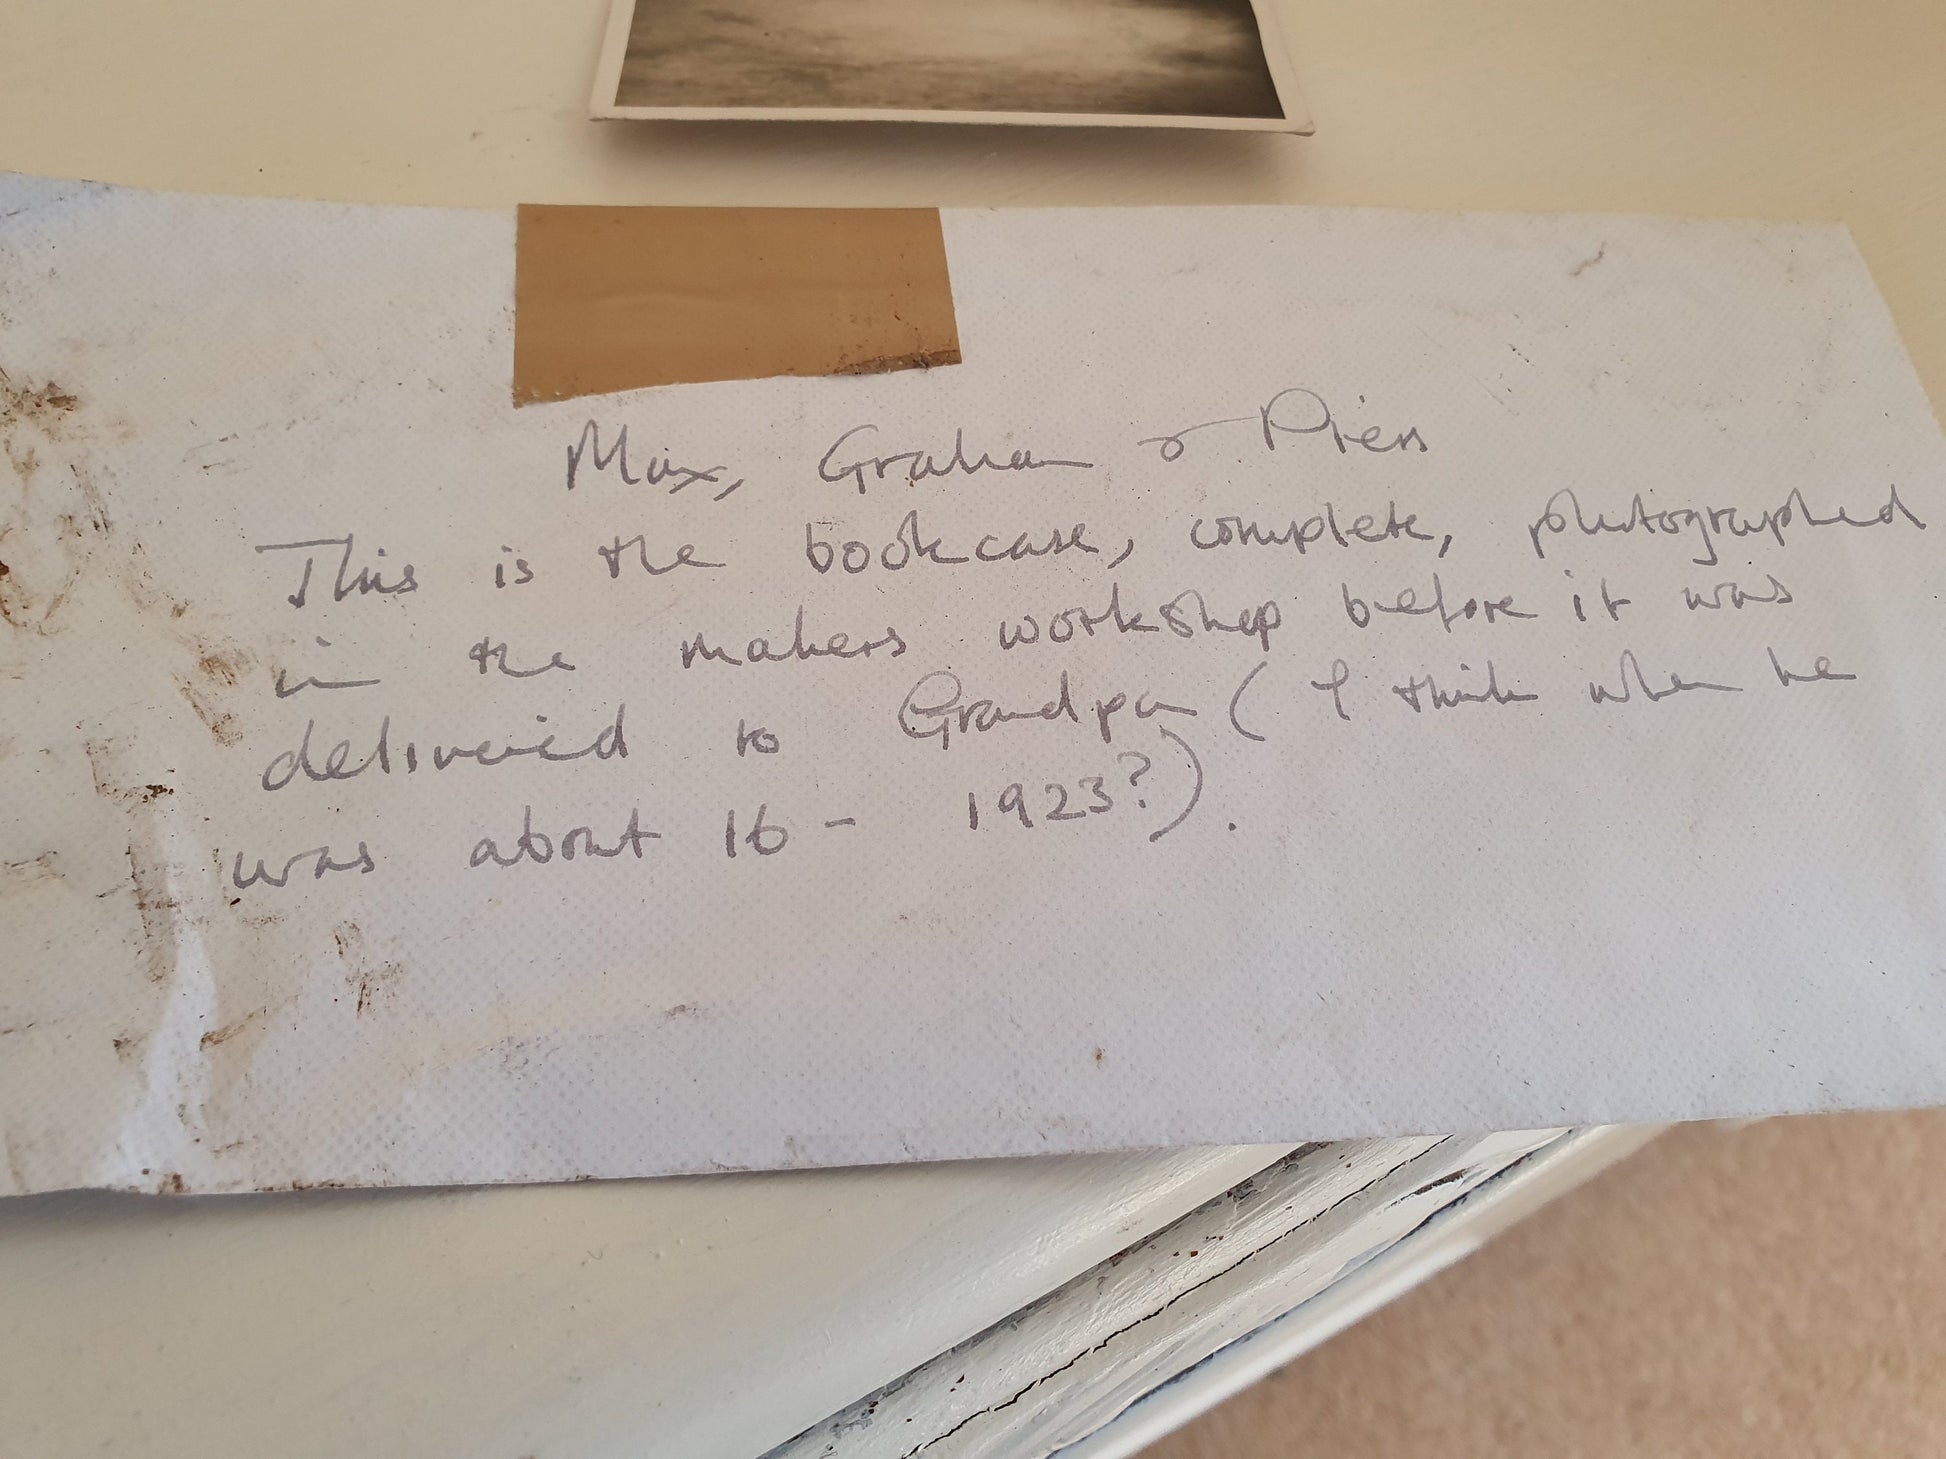 Max, Graham & Piers
This is the bookcase, complete, photographed
in the makers workshop before it was
delivered to Grandpa ( I think when he
was about 16 - 1923?).